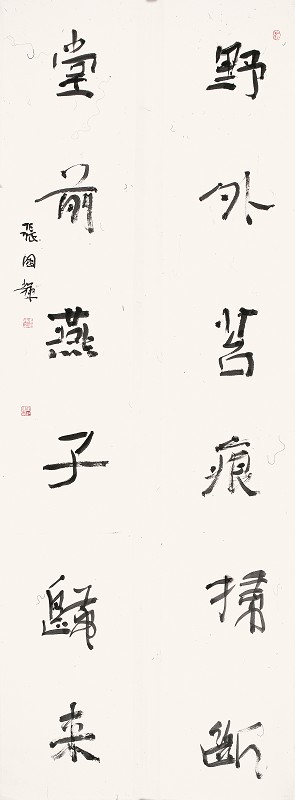 野外苔痕掃斷
堂前燕子歸来
張国